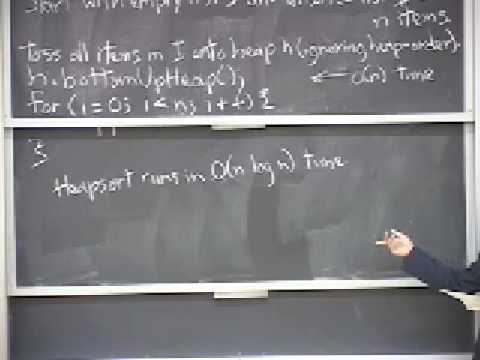 Start with empty list S and
n items.
Toss all items in I onto heap h (ignoring heap-order).
h.bottomUpHeap(); ← O(n) time
for (i = 0; i < n; i++) {
}
Heapsort runs in O(n log n) time.